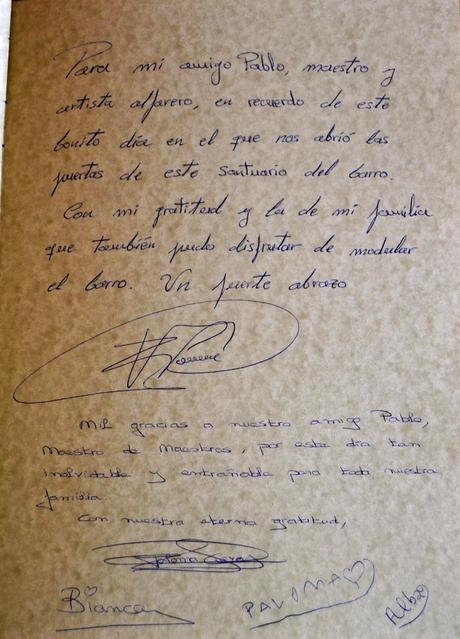 Para mi amigo Pablo, maestro y
artista alfarero, en recuerdo de este
bonito día en el que nos abrió las
puertas de este santuario del barro.
Con mi gratitud y la de mi familia
que también pudo disfrutar de modular
el barro. Un fuerte abrazo
Mil gracias a nuestro amigo Pablo,
Maestro de Maestros, por este día tan
inolvidable y entrañable para toda nuestra
familia
Con nuestra eterna gratitud,
Bianca
PALOMA
Alba